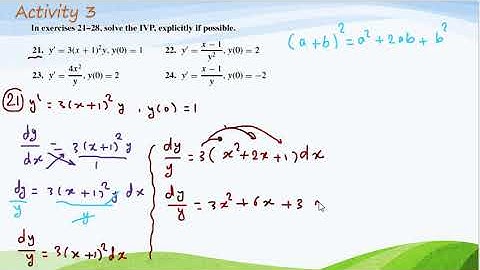 Activity 3
In exercises 21–28, solve the IVP, explicitly if possible.
21. y′ = 3(x + 1)²y, y(0) = 1    22. y′ = (x − 1)/y², y(0) = 2
23. y′ = 4x²/y, y(0) = 2    24. y′ = (x − 1)/y, y(0) = −2
(a+b)² = a² + 2ab + b²
21 y′ = 3(x+1)² y , y(0) = 1
dy/dx = 3(x+1)² y/1
dy/y = 3(x+1)² y/y dx
dy/y = 3(x+1)² dx
dy/y = 3(x²+2x+1)dx
dy/y = 3x² + 6x + 3